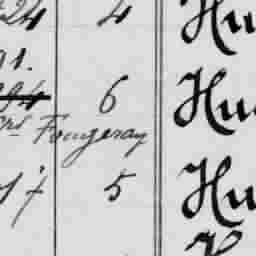 24 4 Hu
91.
294 6 Hu
Crs Fougeray
17 5 Hu